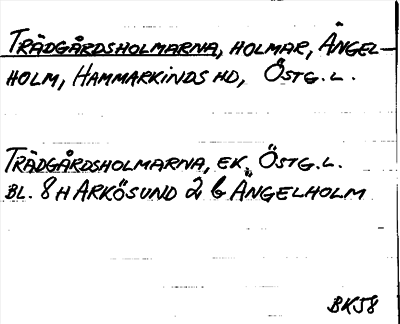 TRÄDGÅRDSHOLMARNA, HOLMAR, ÄNGEL-
HOLM, HAMMARKINDS HD, ÖSTG. L.
TRÄDGÅRDSHOLMARNA, EK. ÖSTG. L.
BL. 8 H ARKÖSUND 2 b ÄNGELHOLM
BK58